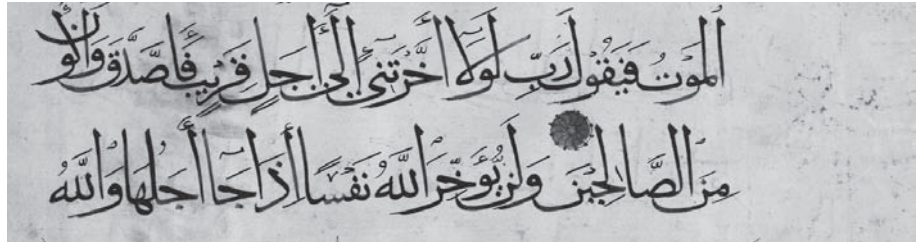 الْمَوْتُ فَيَقُولَ رَبِّ لَوْلَا أَخَّرْتَنِي إِلَىٰ أَجَلٍ قَرِيبٍ فَأَصَّدَّقَ وَأَكُون
مِنَ الصَّالِحِينَ وَلَنْ يُؤَخِّرَ اللَّهُ نَفْسًا إِذَا جَاءَ أَجَلُهَا وَاللَّهُ